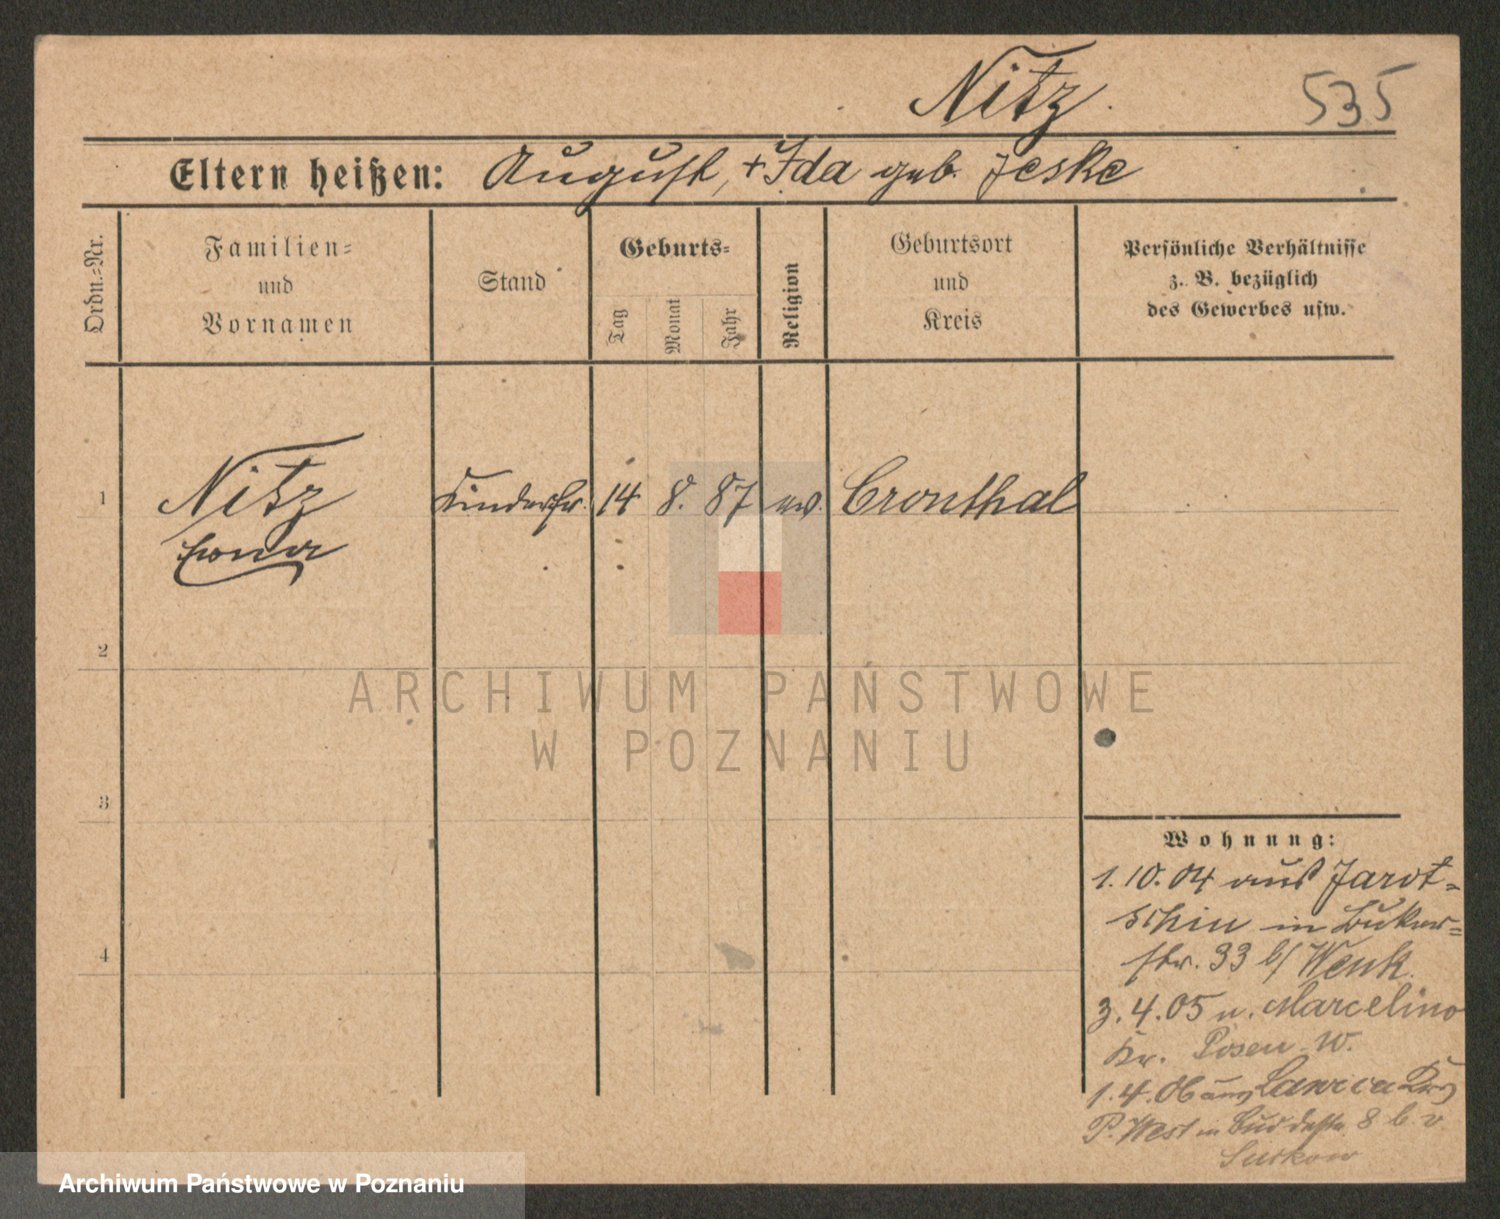 Nitz.
535
Eltern heißen: August, + Ida geb. Jeske
Ordn.-Nr.
Familien-
und
Vornamen
Stand
Geburts-
Tag
Monat
Jahr
Religion
Geburtsort
und
Kreis
Persönliche Verhältnisse
z. B. bezüglich
des Gewerbes usw.
1 Nitz Kinderfr. 14 8. 87 ev. Cronthal
2
3
4
ARCHIWUM PAŃSTWOWE
W POZNANIU
Wohnung:
1.10.04 aus Jarot-
schin in Buker-
str. 33 b/ Wenk.
3.4.05 n. Marcelino
Kr. Posen W.
1.4.06 aus
P. West in 8 b. v
Archiwum Państwowe w Poznaniu